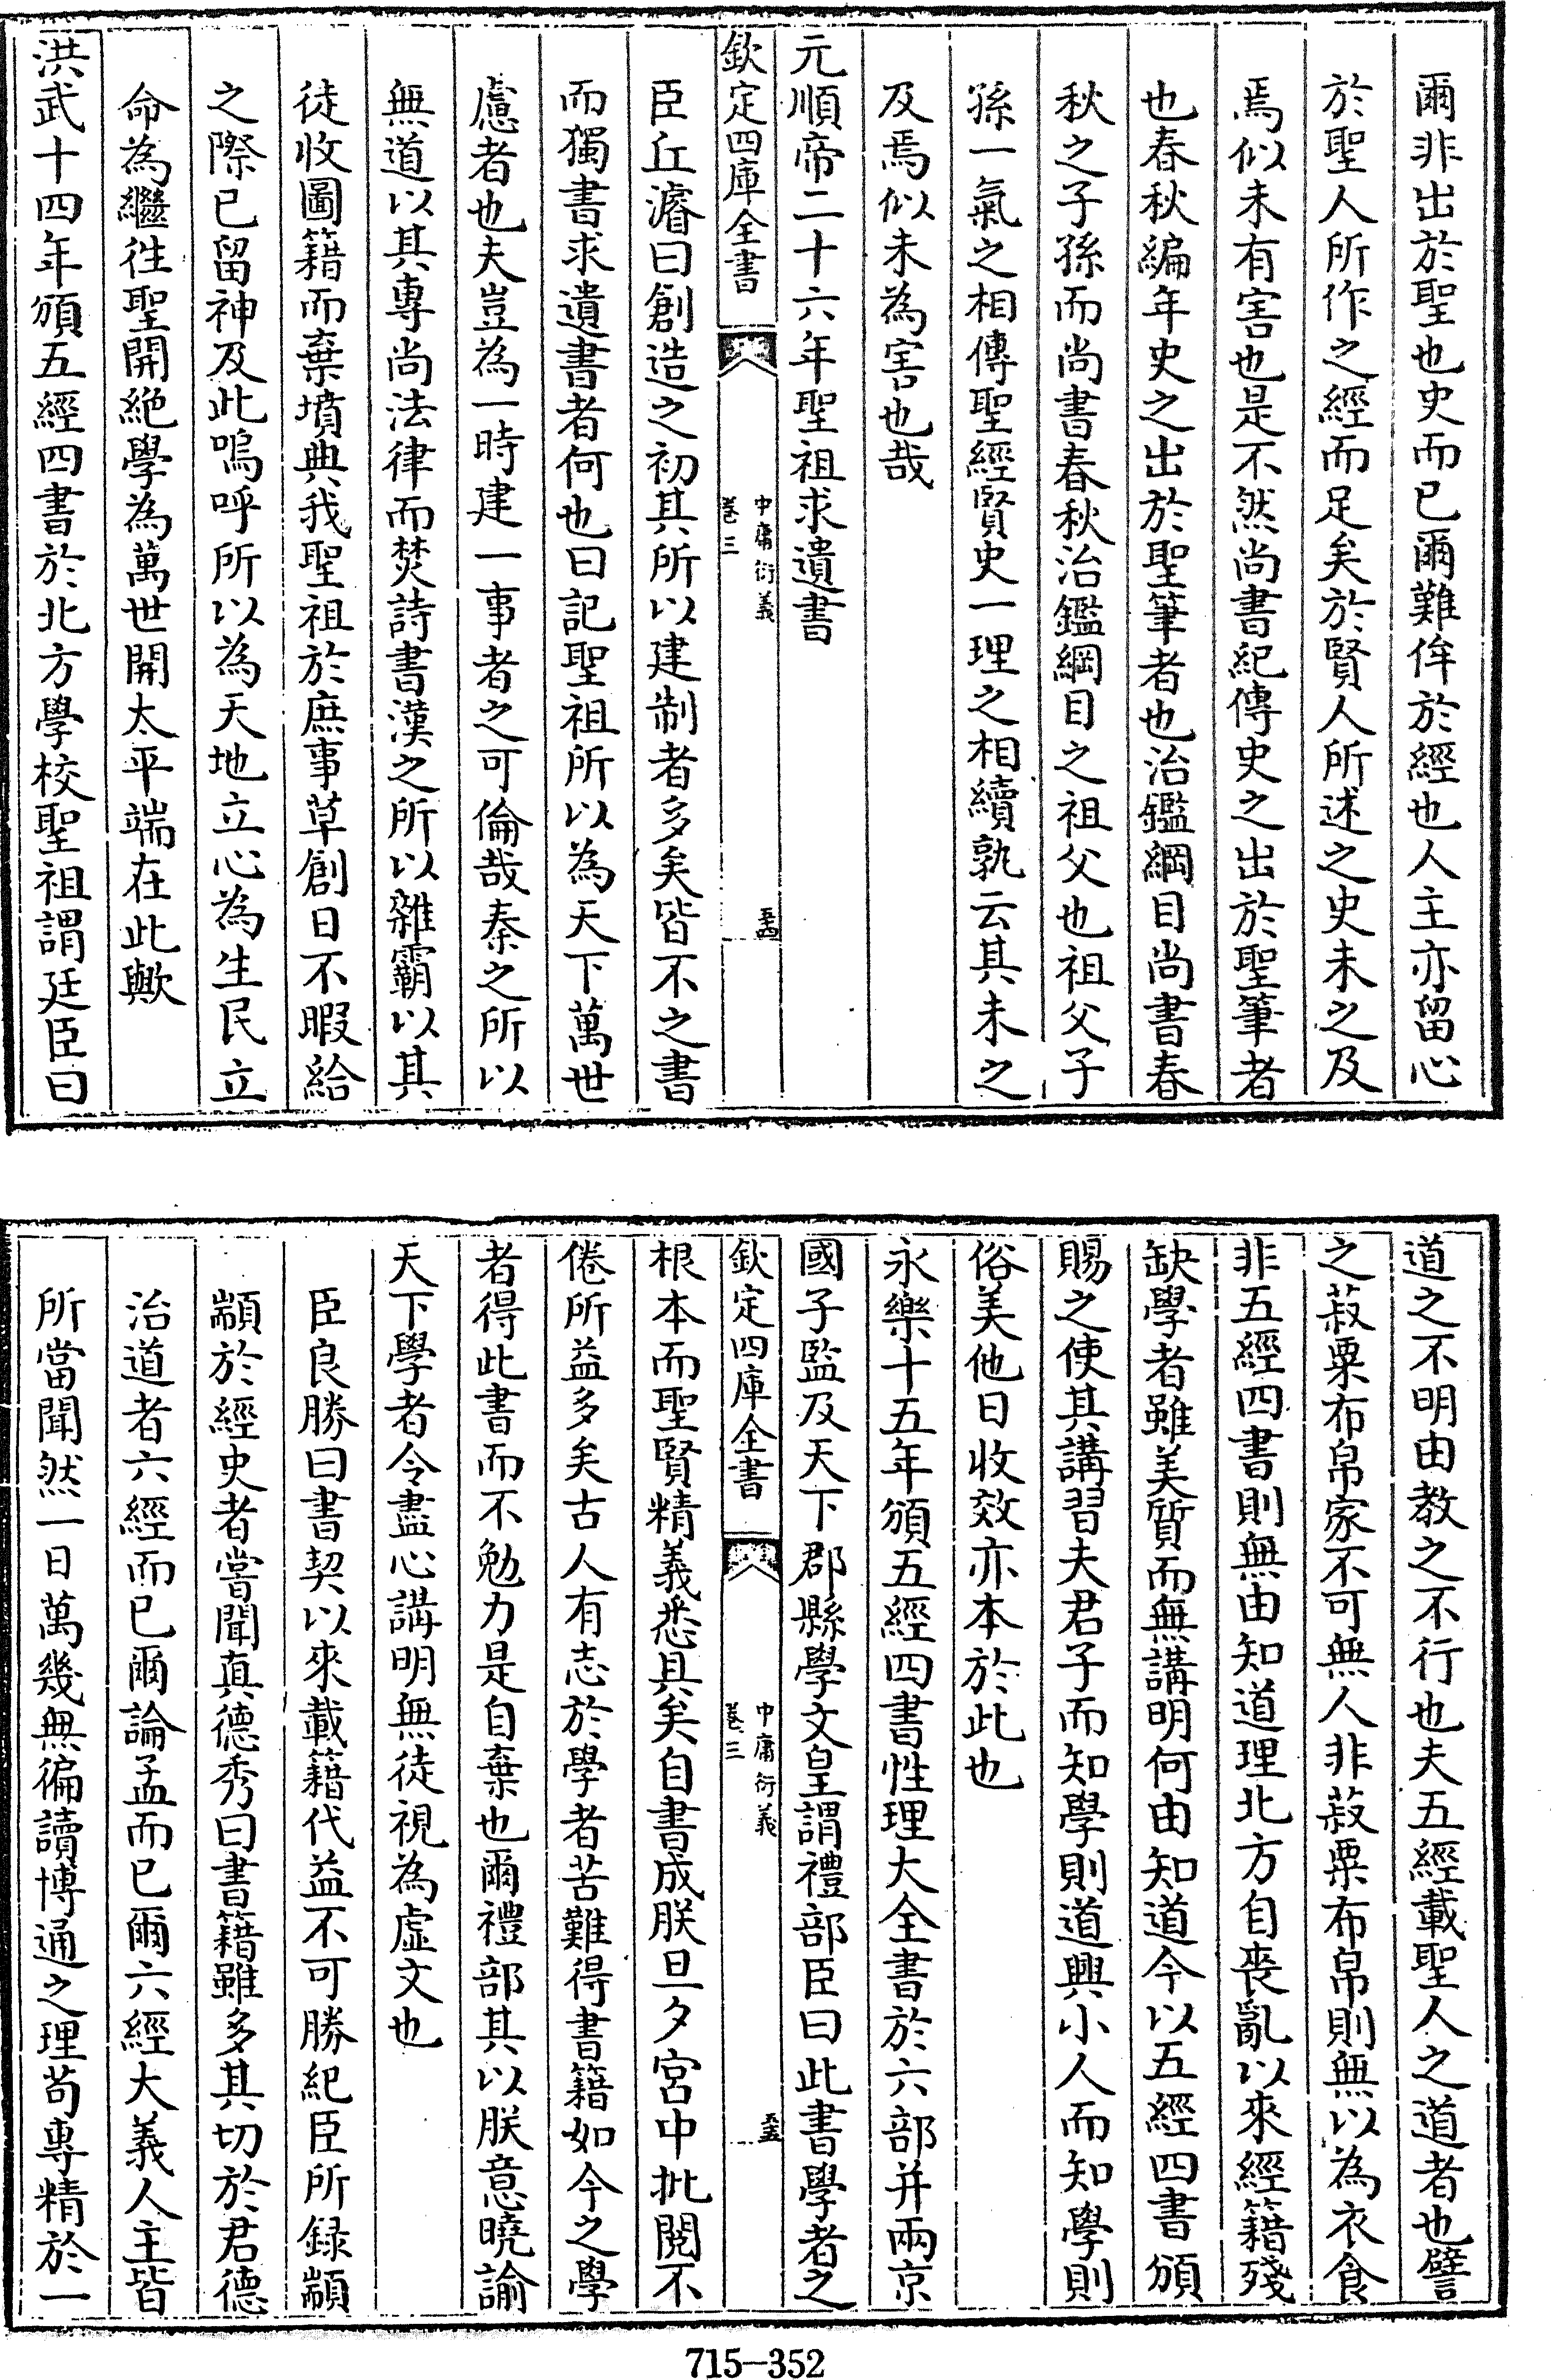 爾非出於聖也史而已爾難侔於經也人主亦留心
於聖人所作之經而足矣於賢人所述之史未之及
焉似未有害也是不然尚書紀傳史之出於聖筆者
也春秋編年史之出於聖筆者也治鑑綱目尚書春
秋之子孫而尚書春秋治鑑綱目之祖父也祖父子
孫一氣之相傳聖經賢史一理之相續孰云其未之
及焉似未為害也哉
元順帝二十六年聖祖求遺書
欽定四庫全書
中庸衍義
卷三
五四
臣丘濬曰創造之初其所以建制者多矣皆不之書
而獨書求遺書者何也曰記聖祖所以為天下萬世
慮者也夫豈為一時建一事者之可倫哉秦之所以
無道以其專尚法律而焚詩書漢之所以雜霸以其
徒收圖籍而棄墳典我聖祖於庶事草創日不暇給
之際已留神及此嗚呼所以為天地立心為生民立
命為繼徃聖開絶學為萬世開太平端在此歟
洪武十四年頒五經四書於北方學校聖祖謂廷臣曰
道之不明由教之不行也夫五經載聖人之道者也譬
之菽粟布帛家不可無人非菽粟布帛則無以為衣食
非五經四書則無由知道理北方自喪亂以來經籍殘
缺學者雖美質而無講明何由知道今以五經四書頒
賜之使其講習夫君子而知學則道興小人而知學則
俗美他日收效亦本於此也
永樂十五年頒五經四書性理大全書於六部并兩京
國子監及天下郡縣學文皇謂禮部臣曰此書學者之
欽定四庫全書
中庸衍義
卷三
五五
根本而聖賢精義悉具矣自書成朕旦夕宮中批閱不
倦所益多矣古人有志於學者苦難得書籍如今之學
者得此書而不勉力是自棄也爾禮部其以朕意曉諭
天下學者令盡心講明無徒視為虛文也
臣良勝曰書契以來載籍代益不可勝紀臣所録顓
顓於經史者嘗聞真德秀曰書籍雖多其切於君德
治道者六經而已爾論孟而已爾六經大義人主皆
所當聞然一日萬幾無徧讀博通之理苟專精於一
715-352